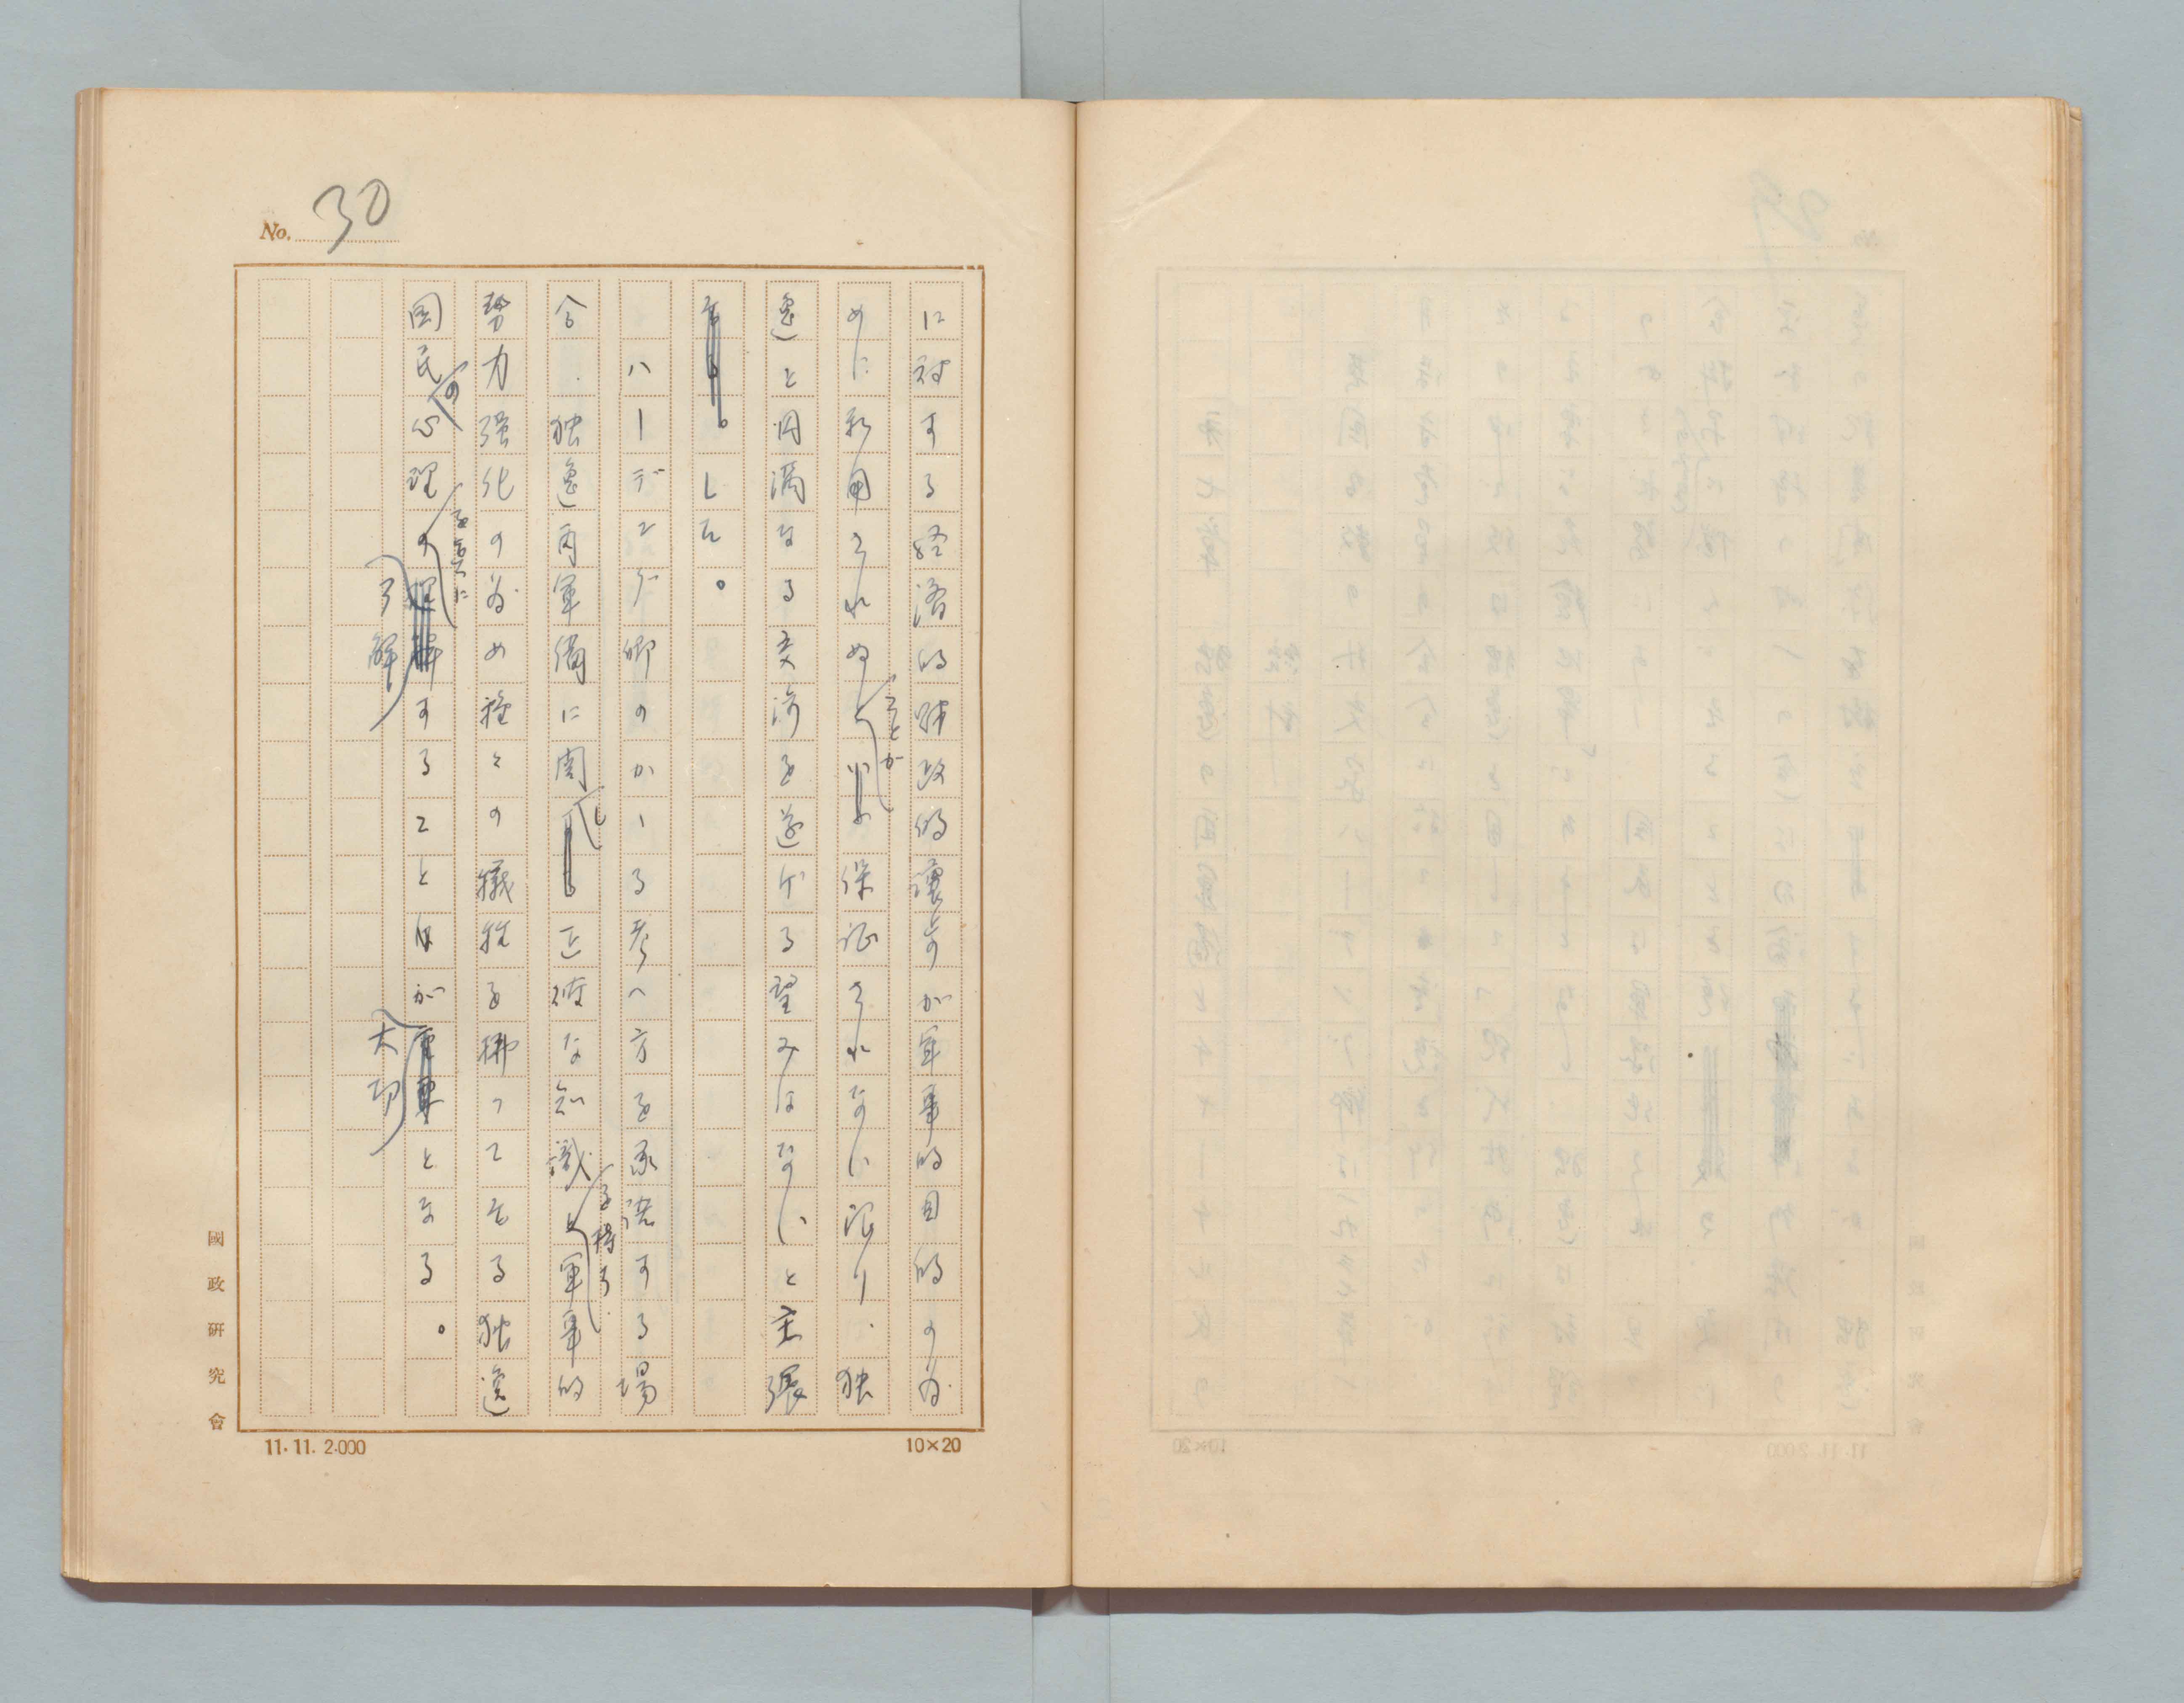 No. 30
に対する経済的財政的讓歩が軍事的目的の為
めに利用されぬと
ことが
保証されない限り、独
逸と円満なる交渉を遂げる望みはないと主張
した。
ハーデング卿のかゝる考へ方を承諾する場
合、独逸再軍備に関
し
正確な知識
を得、
軍事的
勢力強化の為め種々の犠牲を拂つてをる独逸
国民
の
心理の
を真に
了解
することが
大切
となる。
國政研究會
11. 11. 2.000
10×20